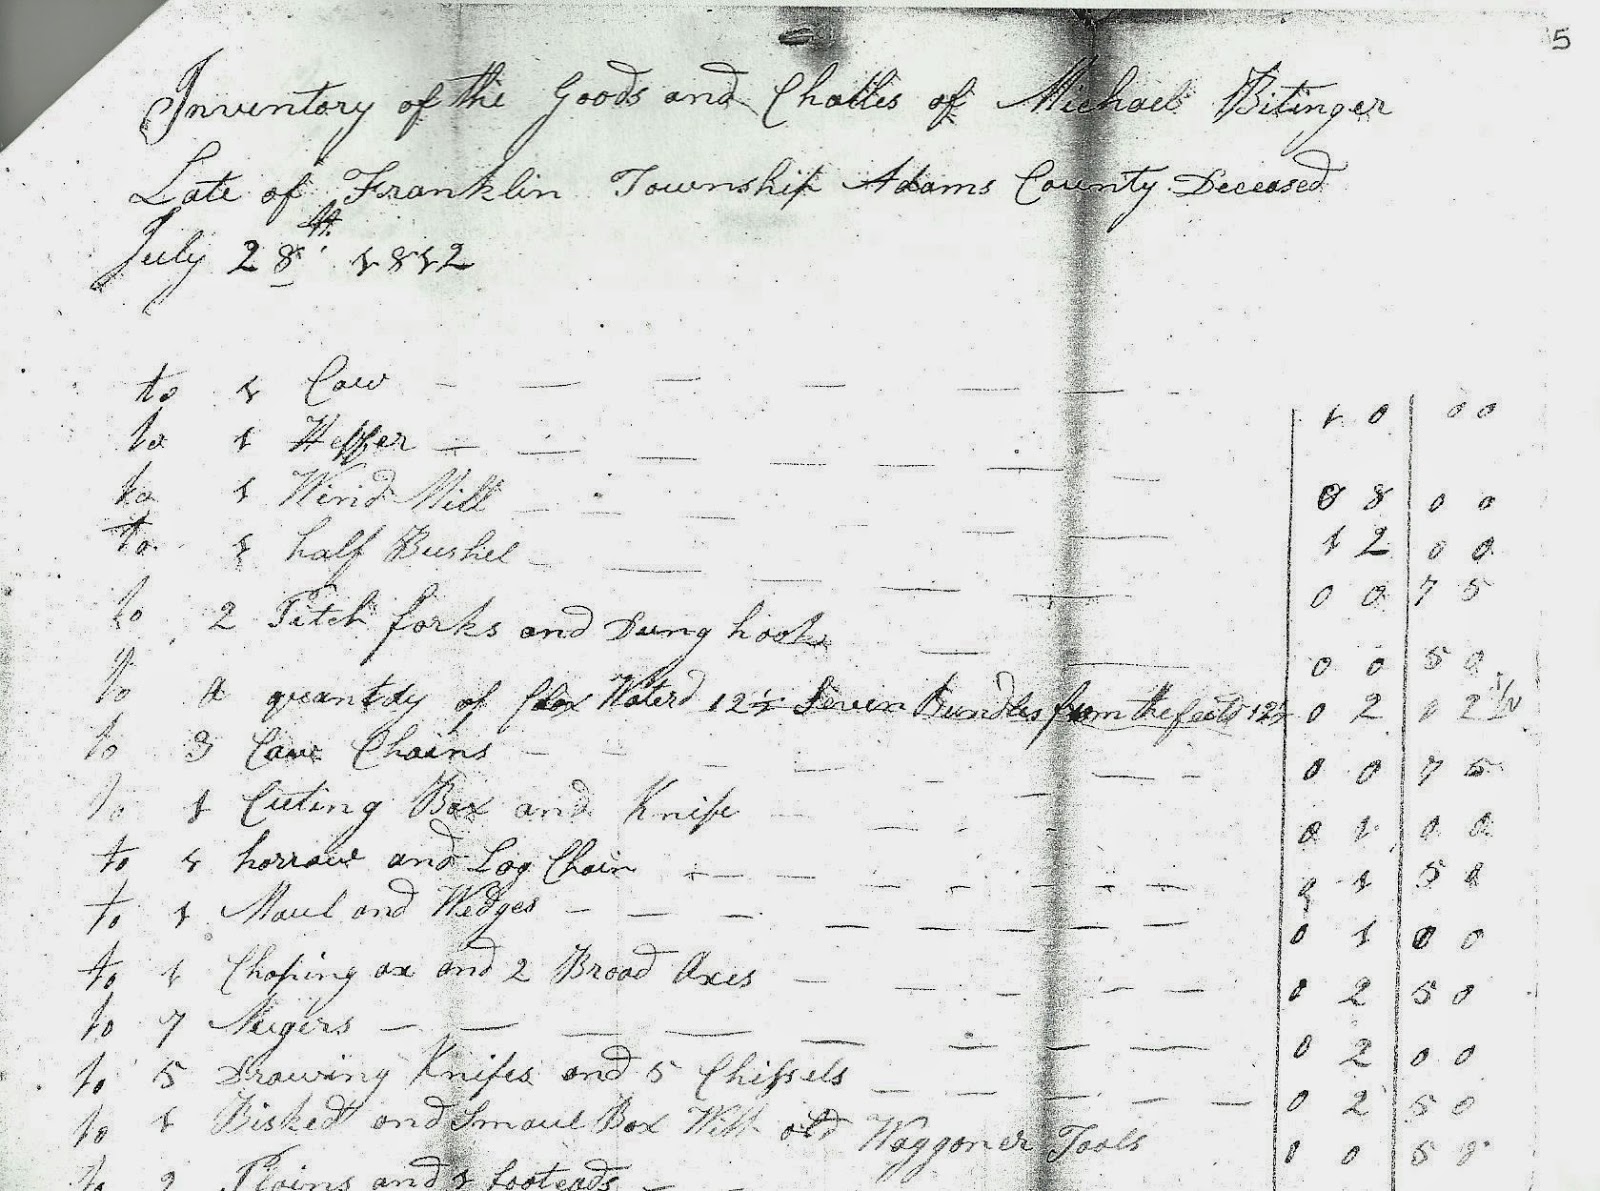 5
Inventory of the Goods and Chattles of Michael Bitinger
Late of Franklin Township Adams County Deceased
July 28th 1812
to 1 Cow 10 00
to 1 Heffer 08 00
to 1 Wind Mill 12 00
to 1 half Bushel 00 75
to 2 Pitch forks and Dung hook 00 50
to a quantidy of Flax Waterd 12½ Seven Bundles from the feeld 12½ 02 12 1/2
to 3 Caw Chains 00 75
to 1 Cuting Box and Knife 01 00
to 1 horrow and Log Chain 01 50
to 1 Maul and Wedges 01 00
to 1 Choping ax and 2 Broad Axes 02 50
to 7 Augers 02 00
to 5 Drawing Knifes and 5 Chissels 02 50
to 1 Bisked and Smaul Box With old Waggoner Tools 00 50
to 2 Plains and 1 footeads